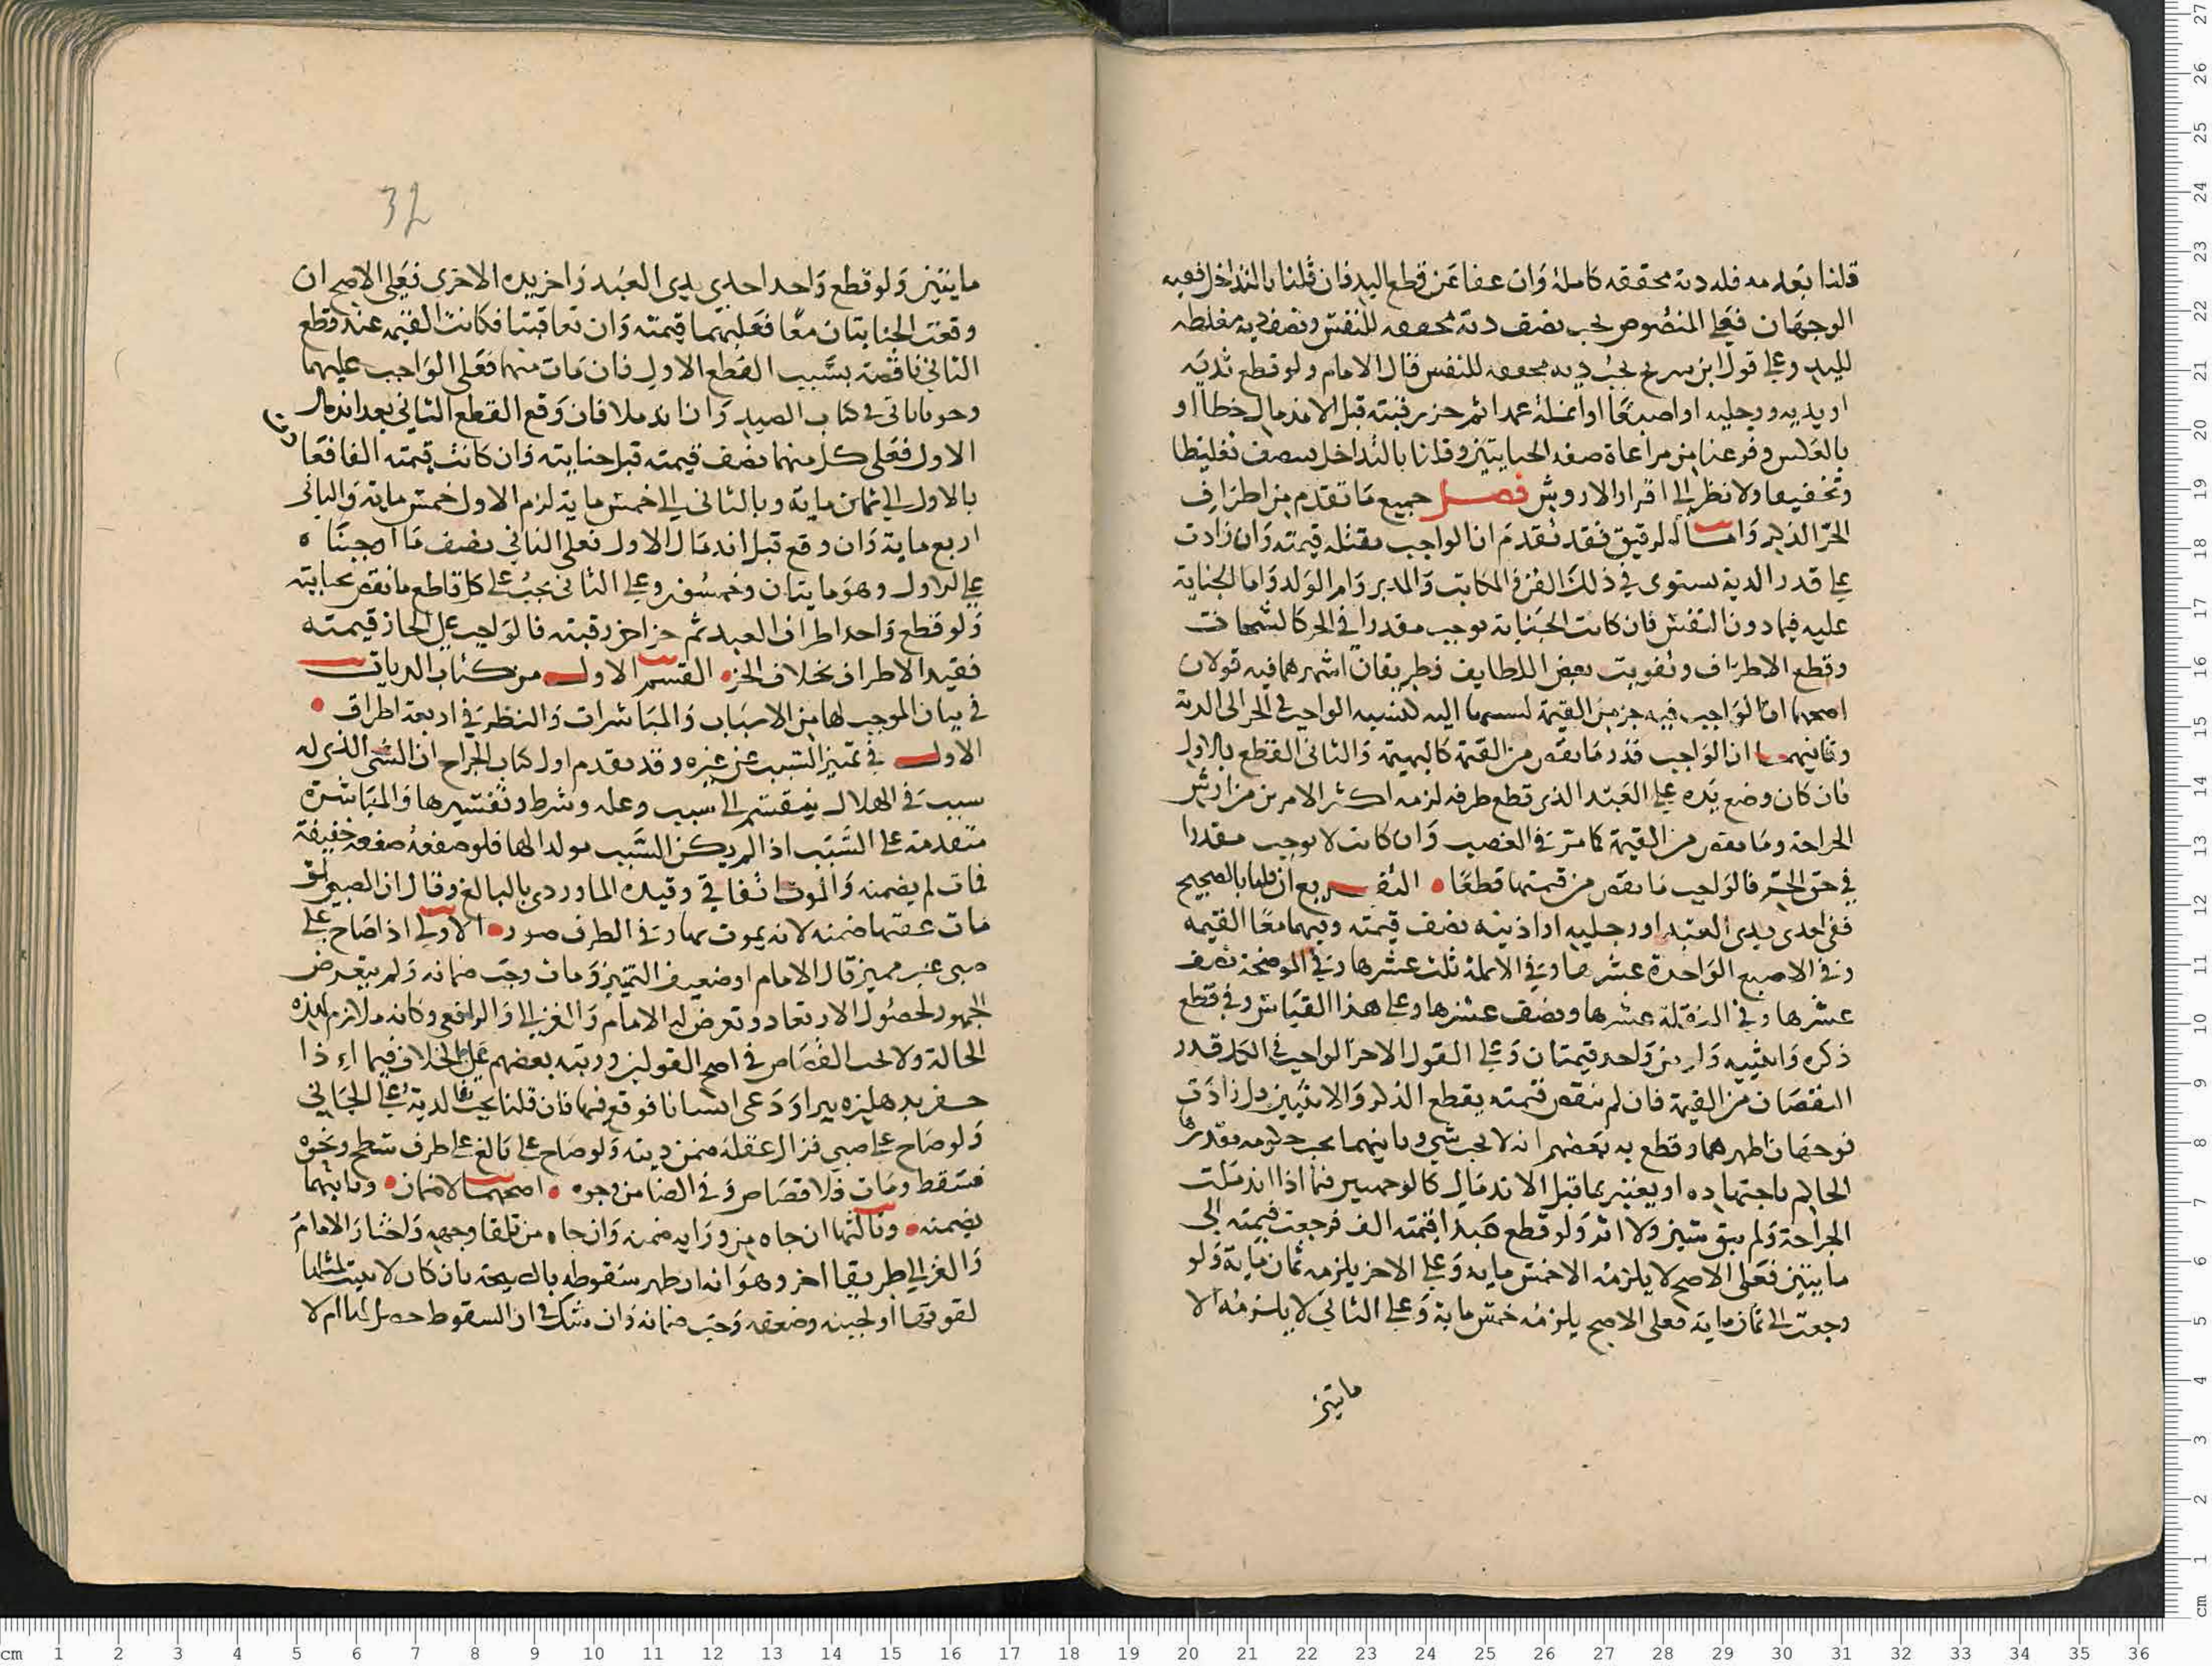 قلنا بعدمه فله دية محققه كاملة وان عفا عن قطع اليد فان قلنا بالتداخل ففيه
الوجهان فعلى المنصوص يجب نصف دية محففه للنفس ونصف دية مغلظه
لليد وعلى قول ابن سريج يجب دية محففه للنفس قال الامام ولو قطع ثدييه
او يديه ورجليه او اصبعا او انملة عمدا ثم حز رقبته قبل الاندمال خطا او
بالعكس وفرعنا من مراعاة صفه الجنايتين وقلنا بالتداخل تغليظا
وتخفيفا ولا نظر الى اقدار الاروش فصل جميع ما تقدم من اطراف
الحر الذكر واما الرقيق فقد تقدم ان الواجب بقتله قيمته وان زادت
على قدر الدية يستوى في ذلك القن والمكاتب والمدبر وام الولد واما الجناية
عليه فيما دون النفس فان كانت الجناية توجب مقدرا في الحر كالشجات
وقطع الاطراف وتفويت بعض اللطايف فطريقان اشهرهما فيه قولان
اصحهما ان الواجب فيه جزء من القيمة نسبتها اليه كنسبه الواجب في الحر الى الدية
وثانيهما ان الواجب قدر ما نقص من القيمة كالبهيمة والثاني القطع بالاول
فان كان وضع يده على العبد الذي قطع طرفه لزمه اكثر الامرين من ارش
الجراحة وما نقص من القيمة كما مر في الغصب وان كانت لا توجب مقدرا
في حق الحر فالواجب ما نقص من قيمتها قطعا التفريع ان قلنا بالصحيح
ففي احدى يدى العبد او رجليه او اذنيه نصف قيمته وفيهما معا القيمه
وفي الاصبع الواحدة عشرها وفي الانملة ثلث عشرها وفي الموضحة نصف
عشرها وفي المنقلة عشرها ونصف عشرها وعلى هذا القياس وفي قطع
ذكره وانثييه قيمتان وعلى القول الاخر الواجب في الكل قدر
النقصان من القيمة فان لم ينقص قيمته بقطع الذكر والانثيين بل زادت
فوجهان اظهرهما وقطع به بعضهم انه لا يجب شيء وثانيهما يجب حكومه يقدرها
الحاكم باجتهاده او يعتبر بما قبل الاندمال كالوجهين فيما اذا اندملت
الجراحة ولم يبق شين ولا اثر ولو قطع عبدا قيمته الف فرجعت قيمته الى
مايتين فعلى الاصح لا يلزمه الا خمس مايه وعلى الاخر يلزمه ثمان ماية ولو
رجعت الى ثمان ماية فعلى الاصح يلزمه خمس ماية وعلى الثاني لا يلزمه الا
مايتين
32
مايتين ولو قطع واحد احدى يدى العبد واخر يده الاخرى فعلى الاصح ان
وقعت الجنايتان معا فعليهما قيمته وان تعاقبتا فكانت القيمه عند قطع
الثاني ناقصة بسبب القطع الاول فان مات منهما فعلى الواجب عليهما
وجوبا ياتي في كتاب الصيد وان اندملا فان وقع القطع الثاني بعد اندمال
الاول فعلى كل منهما نصف قيمته قبل جنايته فان كانت قيمته الفا فعادت
بالاول الى ثمان ماية وبالثاني الى خمس ماية لزم الاول خمس ماية والثاني
اربع ماية وان وقع قبل اندمال الاول فعلى الثاني نصف ما اوجبنا ه
على الاول وهو مايتان وخمسون وعلى الثاني يجب على كل قاطع ما نقص بجنايته
ولو قطع واحد اطراف العبد ثم حز اخر رقبته فالواجب على الحاز قيمته
فقيد الاطراف بخلاف الحر القسم الاول من كتاب الديات
في بيان الموجب لها من الاسباب والمباشرات والنظر في اربعة اطراف
الاول في تمييز السبب عن غيره وقد تقدم اول كتاب الجراح ان الشي الذي له
سبب في الهلاك ينقسم الى سبب وعله وشرط وتفسيرها والمباشرة
متقدمة على السبب اذا لم يكن السبب مولدا لها فلو صفعه صفعة خفيفة
فمات لم يضمنه والموت اتفاقي وقيده الماوردي بالبالغ وقال ان الصبي لو
مات عقبها ضمنه لانه يموت بها وفي الطرف صور الاولى اذا صاح على
صبي غير مميز قال الامام او ضعيف التمييز ومات وجب ضمانه ولم يتعرض
الجمهور لحصول الارتعاد وتعرض له الامام والغزالي والرافعي وكانه ملازم لهذه
الحالة ولا يجب القصاص في اصح القولين ورتبه بعضهم على الخلاف فيما اذا
حفر بدهليزه بيرا ودعى انسانا فوقع فيها فان قلنا يجب فالدية على الجاني
ولو صاح على صبي فزال عقله ضمن ديته ولو صاح على بالغ على طرف سطح ونحوه
فسقط ومات فلا قصاص وفي الضمان وجوه اصحها لا ضمان وثانيها
يضمنه وثالثها ان جاه من ورايه ضمنه وان جاه من تلقا وجهه واختار الامام
والغزالي طريقا اخر وهو انه ان ظهر سقوطه بالصيحة بان كان لا يثبت لمثلها
لقوتها او لجبنه وضعفه وجب ضمانه وان شك في ان السقوط حصل لها ام لا